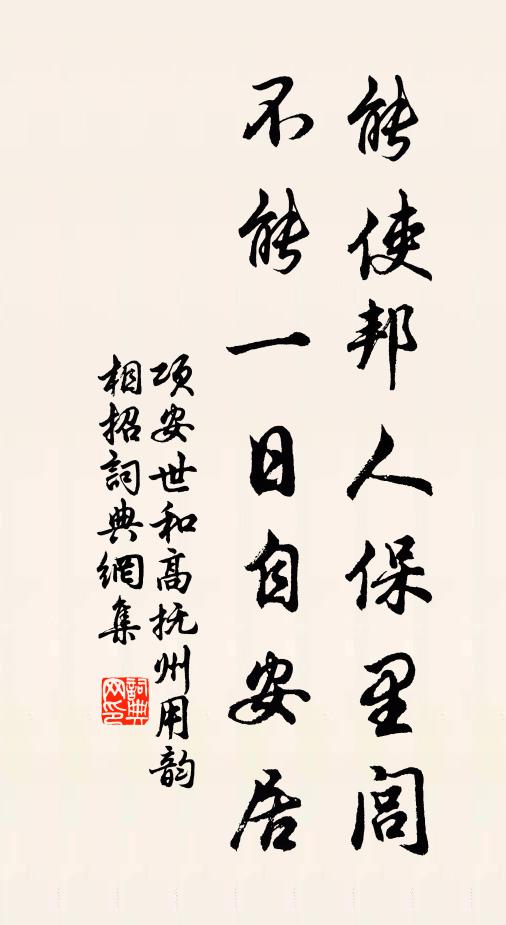 能使邦人保里闾
不能一日自安居
项安世和高抚州用韵
相招詞典網集
詞典
网印